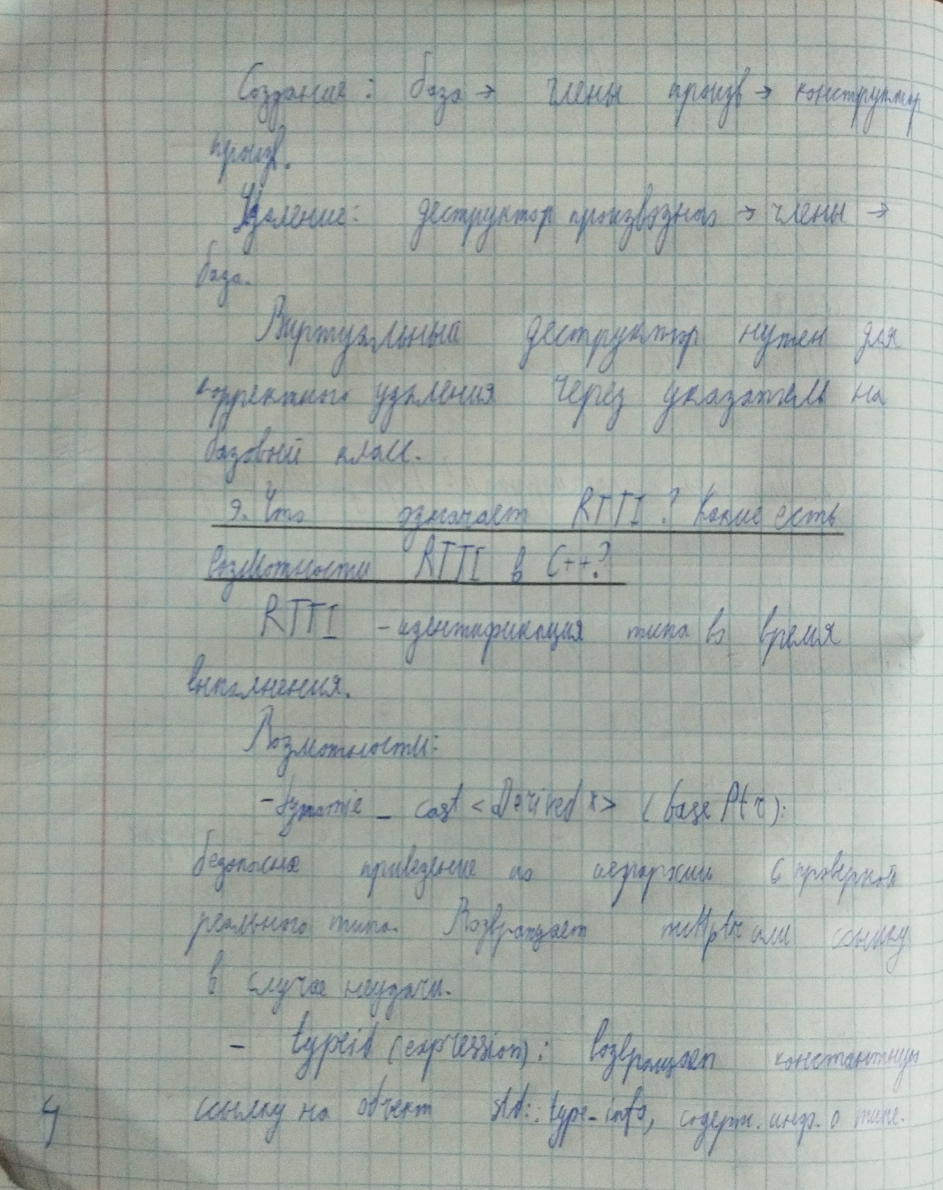 Создание: база → члены произв → конструктор
произв.
Удаление: деструктор производного → члены →
база.
Виртуальный деструктор нужен для
корректного удаления через указатель на
базовый класс.
9. Что означает RTTI? Какие есть
возможности RTTI в C++?
RTTI - идентификация типа во время
выполнения.
Возможности:
- dynamic_cast <Derived*> (basePtr):
безопасное приведение по иерархии с проверкой
реального типа. Возвращает nullptr или ссылку
в случае неудачи.
- typeid (expression): возвращает константную
ссылку на объект std::type_info, содерж. инф. о типе.
4